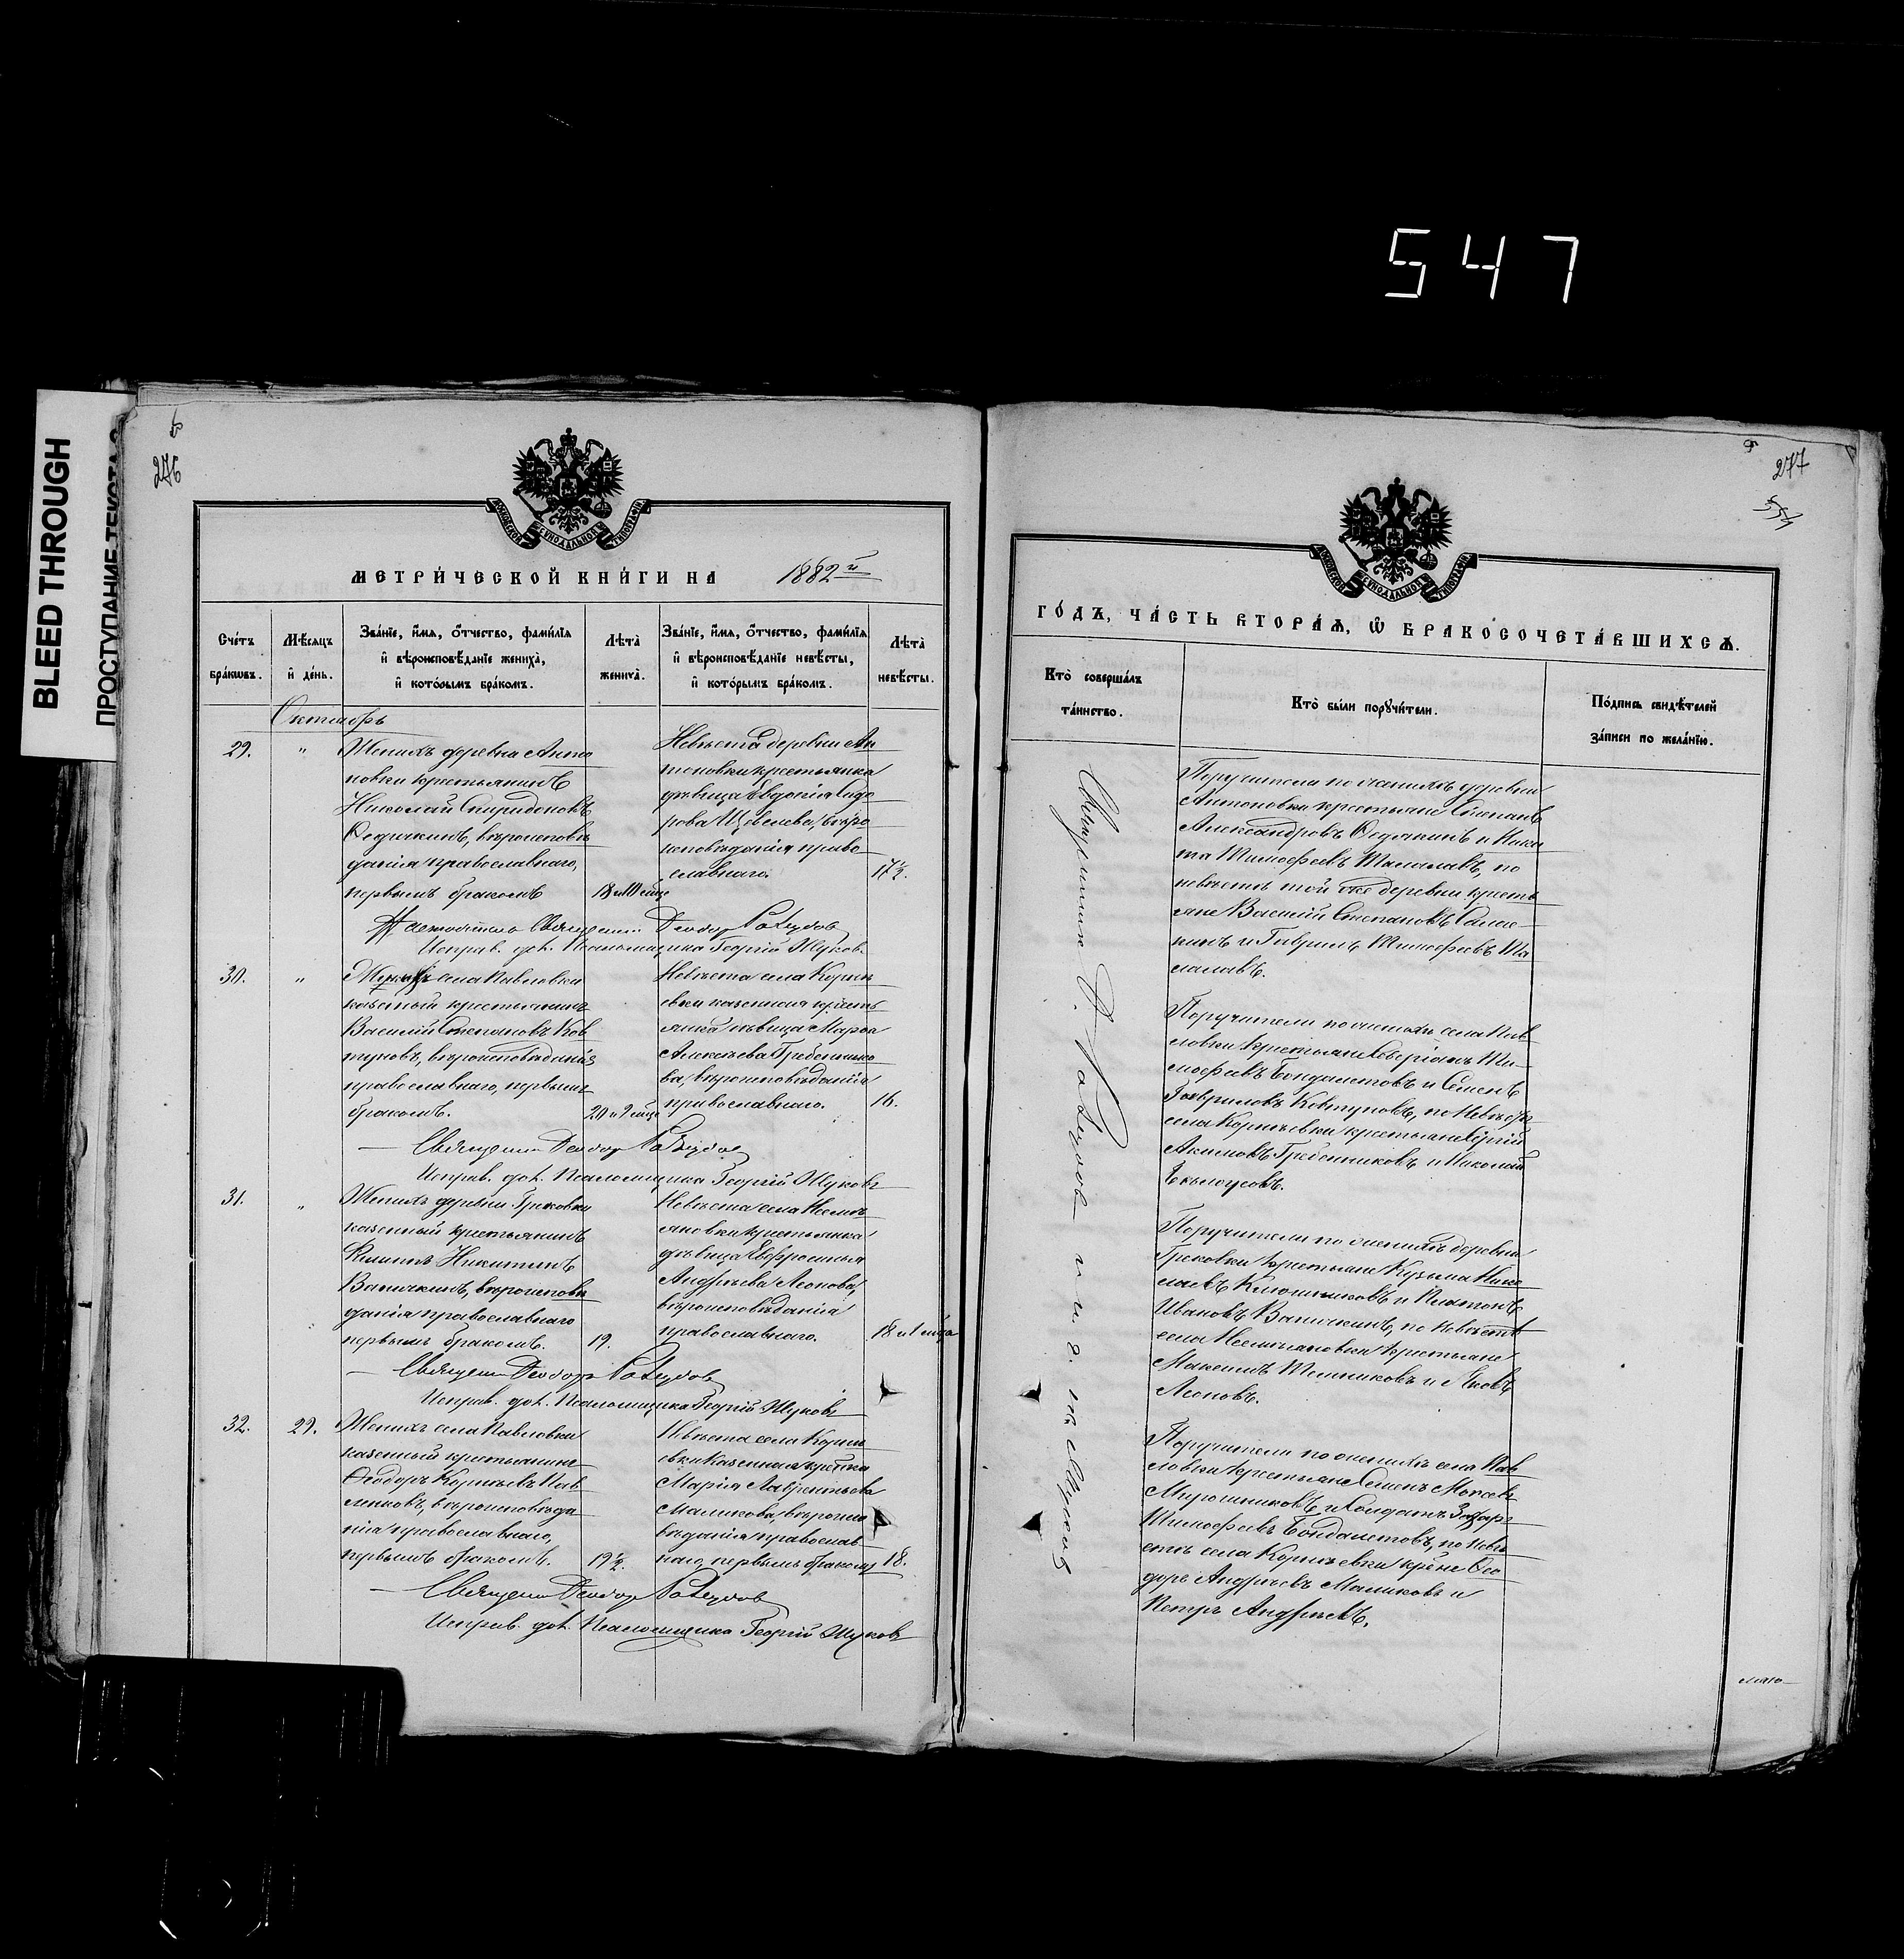 547
BLEED THROUGH
276
МЕТРИ́ЧЕСКОЙ КНИ́ГИ НА 1882й
Сче́тъ бра́кѡвъ.
Мѣ́сяцъ и҆ де́нь.
Зва́нїе, и҆́мѧ, ѻ҆́тчество, фами́лїѧ и҆ вѣроисповѣ́данїе жениха̀, и҆ кото́рымъ бра́комъ.
Лѣ́та̀ жениха̀.
Зва́нїе, и҆́мѧ, ѻ҆́тчество, фами́лїѧ и҆ вѣроисповѣ́данїе невѣ́сты, и҆ кото́рымъ бра́комъ.
Лѣ́та̀ невѣ́сты.
Октябрь
29. "
Женихъ деревни Анто
новки крестьянинъ
Николай Спиридоновъ
Федякинъ, вѣроисповѣ
данія православнаго,
первымъ бракомъ
18 и 10 мце
Невѣста деревни Ан
тоновки крестьянка
дѣвица Евдокія Сидо
рова Щавелева, вѣро
исповѣданія право
славнаго.
17½.
Священн Ѳеодор
Исправ. дол. Псаломщика Георгій Жуков
30. "
Женихъ села Павловки
казенный крестьянинъ
Василій Степановъ Ков
туновъ, вѣроисповѣданія
православнаго, первымъ
бракомъ.
20 и 9 мце
Невѣста села Корнѣ
евки казенная кресть
янка дѣвица Марѳа
Алексѣева Гребеннико
ва, вѣроисповѣданія
православнаго.
16.
Священн Ѳеодор
Исправ. дол. Псаломщика Георгій Жуковъ
31. "
Женихъ деревни Грековки
казенный крестьянинъ
Филиппъ Никитинъ
Ваничкинъ, вѣроисповѣ
данія православнаго
первымъ бракомъ.
19.
Невѣста села Несмѣ
яновки крестьянка
дѣвица Евфросинья
Андрѣева Леонова,
вѣроисповѣданія
православнаго.
18 и 1 мца
Священн Ѳеодоръ
Исправ. дол. Псаломщика Георгій Жуковъ
32. 29.
Женихъ села Павловки
казенный крестьянинъ
Ѳеодоръ Корнѣевъ Пав
ленковъ, вѣроисповѣда
нія православнаго,
первымъ бракомъ.
19½.
Невѣста села Корнѣ
евки казенная кр-нка
Марія Лаврентьева
Маликова, вѣроиспо
вѣданія православ
наго, первымъ бракомъ
18.
Священн Ѳеодор
Исправ. дол. Псаломщика Георгій Жуковъ
277
554
ГО́ДЪ, ЧА́СТЬ ВТОРА́Ѧ, Ѡ҆ БРАКОСОЧЕТА́ВШИХСѦ.
Кто̀ соверша́лъ та́инство.
Кто̀ бы́ли порꙋчи́тели.
По́дпись свидѣ́телей за́писи по жела́нїю.
Священникъ Ѳ. и и. д. пс. Жуковъ
Поручители по женихѣ деревни
Антоновки крестьяне Степанъ
Александровъ Федякинъ и Ники
та Тимофеевъ Талалаевъ, по
невѣстѣ той же деревни кресть
яне Василій Степановъ
и Гаврилъ Тимофеевъ Та
лалаевъ.
Поручители по женихѣ села Пав
ловки крестьяне Северіанъ Ти
мофеевъ Бондалетовъ и Семенъ
Гавриловъ Ковтуновъ, по невѣстѣ
села Корнѣевки крестьяне Сергій
Акимовъ Гребенниковъ и Николай
Бѣлоусовъ.
Поручители по женихѣ деревни
Грековки крестьяне Кузьма Нико
лаевъ Ключниковъ и Платонъ
Ивановъ Ваничкинъ, по невѣстѣ
села Несмѣяновки крестьяне
Максимъ и Яковъ
Леоновъ.
Поручители по женихѣ села Пав
ловки крестьяне Семенъ Моисеевъ
Мирошниковъ и Солдатъ Захаръ
Тимофеевъ Бондалетовъ, по невѣ
стѣ села Корнѣевки кр-не Ѳео
доръ Андрѣевъ Маликовъ и
Петръ Андрѣевъ.